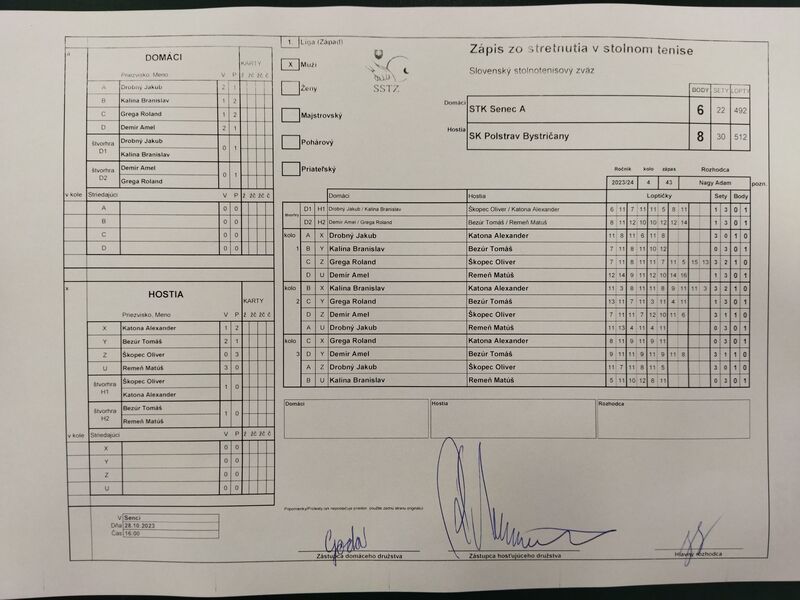 DOMÁCI
KARTY
Priezvisko, Meno V P ž žč žč č
A Drobný Jakub 2 1
B Kalina Branislav 1 2
C Grega Roland 1 2
D Demir Amel 2 1
štvorhra D1 Drobný Jakub 0 1
Kalina Branislav
štvorhra D2 Demir Amel 0 1
Grega Roland
v kole Striedajúci V P ž žč žč č
A 0 0
B 0 0
C 0 0
D 0 0
HOSTIA
KARTY
Priezvisko, Meno V P ž žč žč č
X Katona Alexander 1 2
Y Bezúr Tomáš 2 1
Z Škopec Oliver 0 3
U Remeň Matúš 3 0
štvorhra H1 Škopec Oliver 1 0
Katona Alexander
štvorhra H2 Bezúr Tomáš 1 0
Remeň Matúš
v kole Striedajúci V P ž žč žč č
X 0 0
Y 0 0
Z 0 0
U 0 0
V Senci
Dňa 28.10.2023
Čas 16:00
1. Liga (Západ)
X Muži
Ženy
Majstrovský
Pohárový
Priateľský
SSTZ
Zápis zo stretnutia v stolnom tenise
Slovenský stolnotenisový zväz
BODY SETY LOPTY
Domáci STK Senec A 6 22 492
Hostia SK Polstrav Bystričany 8 30 512
Ročník kolo zápas Rozhodca
2023/24 4 43 Nagy Adam pozn.
Domáci Hostia Loptičky Sety Body
D1 H1 Drobný Jakub / Kalina Branislav Škopec Oliver / Katona Alexander 6 11 7 11 11 5 8 11 1 3 0 1
D2 H2 Demir Amel / Grega Roland Bezúr Tomáš / Remeň Matúš 8 11 12 10 10 12 12 14 1 3 0 1
kolo A X Drobný Jakub Katona Alexander 11 8 11 6 11 8 3 0 1 0
1 B Y Kalina Branislav Bezúr Tomáš 7 11 8 11 10 12 0 3 0 1
C Z Grega Roland Škopec Oliver 7 11 8 11 11 7 11 5 15 13 3 2 1 0
D U Demir Amel Remeň Matúš 12 14 9 11 12 10 14 16 1 3 0 1
kolo B X Kalina Branislav Katona Alexander 11 3 8 11 8 11 9 11 11 3 3 2 1 0
2 C Y Grega Roland Bezúr Tomáš 13 11 7 11 3 11 4 11 1 3 0 1
D Z Demir Amel Škopec Oliver 7 11 11 7 12 10 11 6 3 1 1 0
A U Drobný Jakub Remeň Matúš 11 13 4 11 4 11 0 3 0 1
kolo C X Grega Roland Katona Alexander 8 11 9 11 9 11 0 3 0 1
3 D Y Demir Amel Bezúr Tomáš 9 11 11 9 11 9 11 8 3 1 1 0
A Z Drobný Jakub Škopec Oliver 11 7 11 5 11 8 3 0 1 0
B U Kalina Branislav Remeň Matúš 5 11 10 12 8 11 0 3 0 1
Domáci Hostia Rozhodca
Zástupca domáceho družstva Zástupca hosťujúceho družstva Hlavný rozhodca